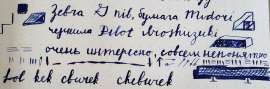 Зебра G nib, бумага Midori
чернила Pilot Iroshizuki
очень интересно, совсем непонятно
lol kek cвичек chebureck